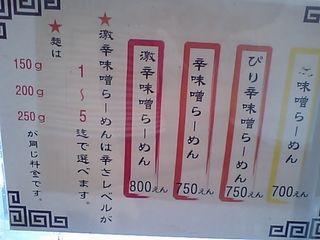 味噌らーめん
700えん
ぴり辛味噌らーめん
750えん
辛味噌らーめん
750えん
激辛味噌らーめん
800えん
★激辛味噌らーめんは辛さレベルが
1〜5迄で選べます。
★麺は
150g
200g
250g
が同じ料金です。